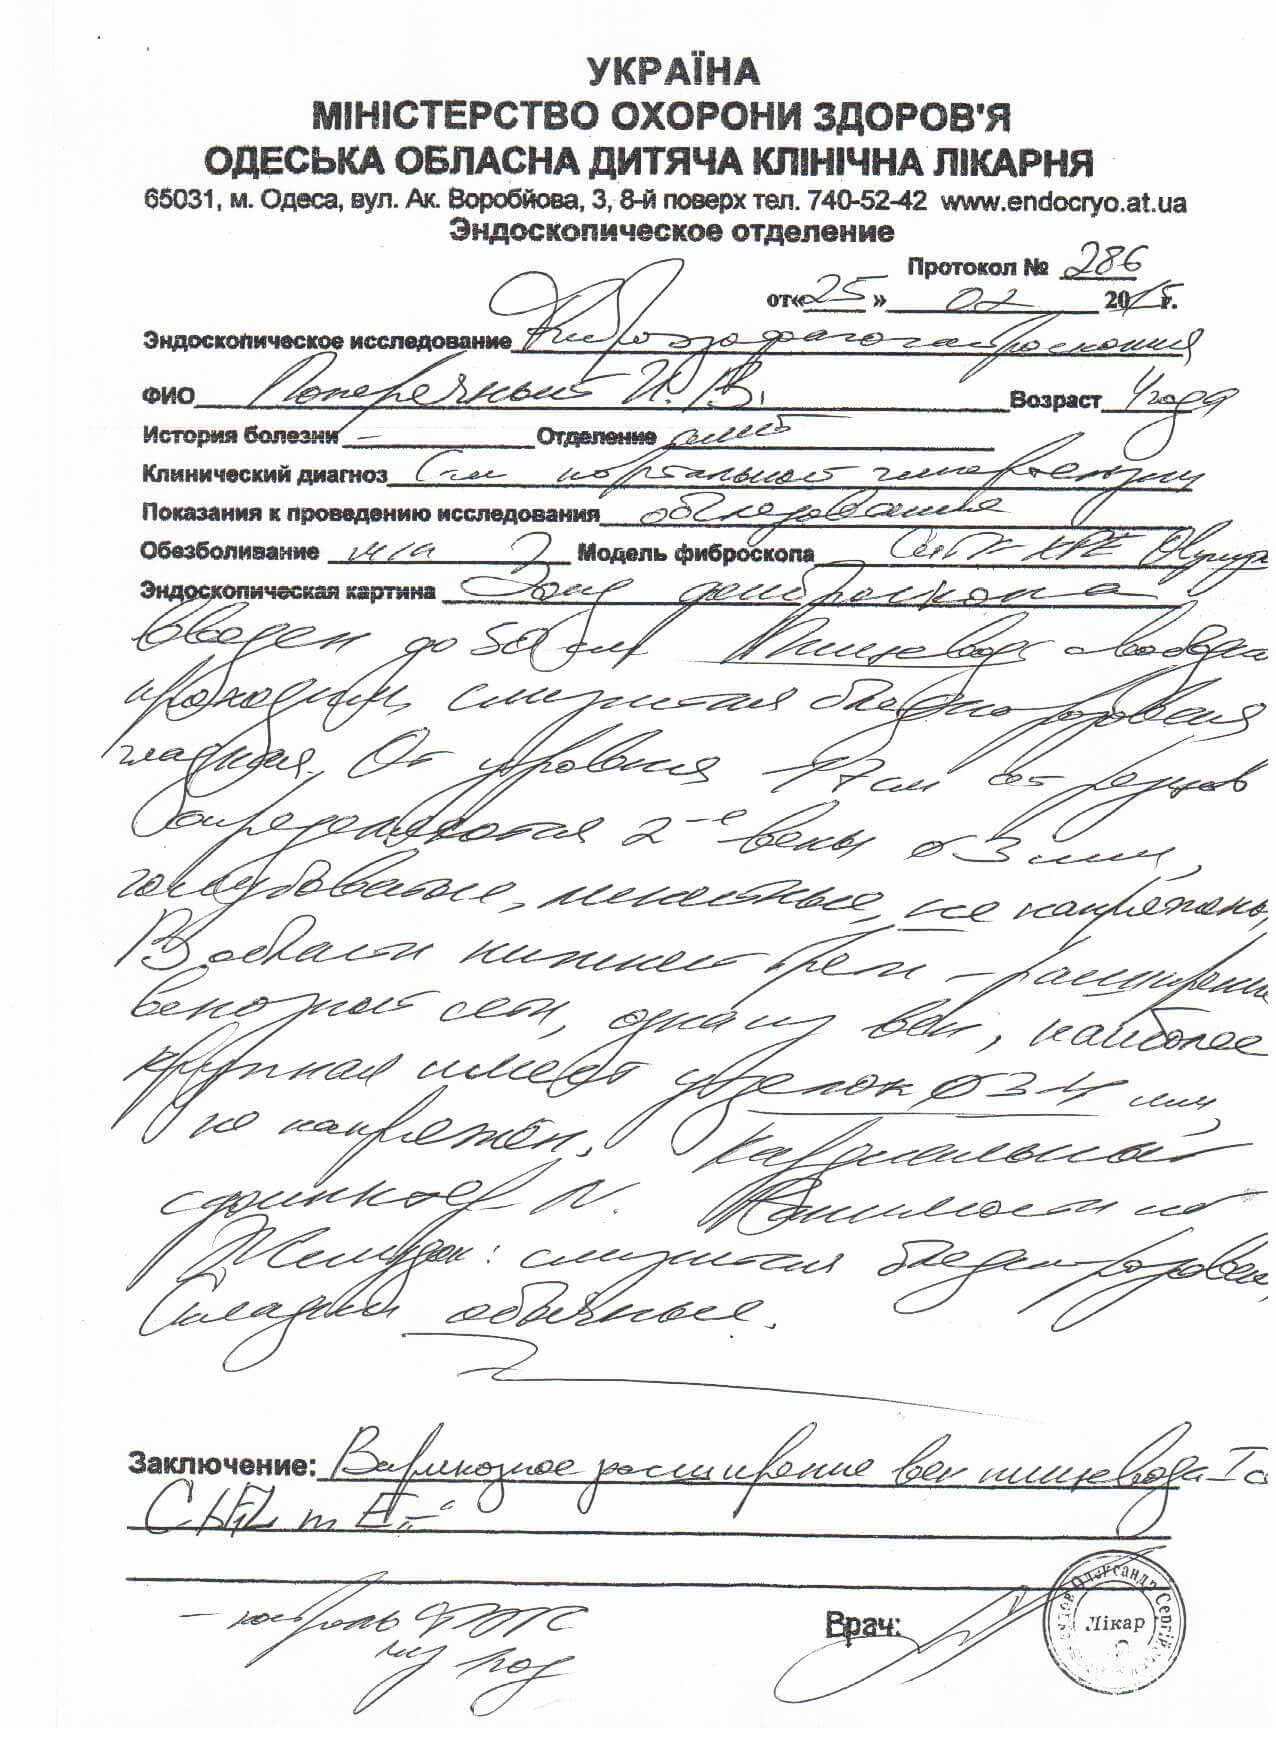 УКРАЇНА
МІНІСТЕРСТВО ОХОРОНИ ЗДОРОВ'Я
ОДЕСЬКА ОБЛАСНА ДИТЯЧА КЛІНІЧНА ЛІКАРНЯ
65031, м. Одеса, вул. Ак. Воробйова, 3, 8-й поверх тел. 740-52-42 www.endocryo.at.ua
Эндоскопическое отделение
Протокол № 286
от« 25 » 02 2015 г.
Эндоскопическое исследование Фиброэзофагогастроскопия
ФИО Поперечный И. В. Возраст 4 года
История болезни – Отделение
Клинический диагноз портальной гипертензии
Показания к проведению исследования обследование
Обезболивание Модель фиброскопа
Эндоскопическая картина Зонд фиброскопа
введен до 50 см Пищевод свободно
проходим, слизистая бледнорозовая
гладкая. От уровня 17 см от резцов
определяются 2-е вены ø 3 мм,
голубоватые, не напряжены,
В области нижней трети – расширение
венозной сети, одна из вен, наиболее
крупная имеет узелок ø 3-4 мм,
не напряжён. Кардиальный
сфинктер N.
Желудок: слизистая бледнорозовая,
складки обычные.
Заключение: Варикозное расширение вен пищевода I ст
– контроль ФЭГС
Врач:
Лікар
Олександр Сергій